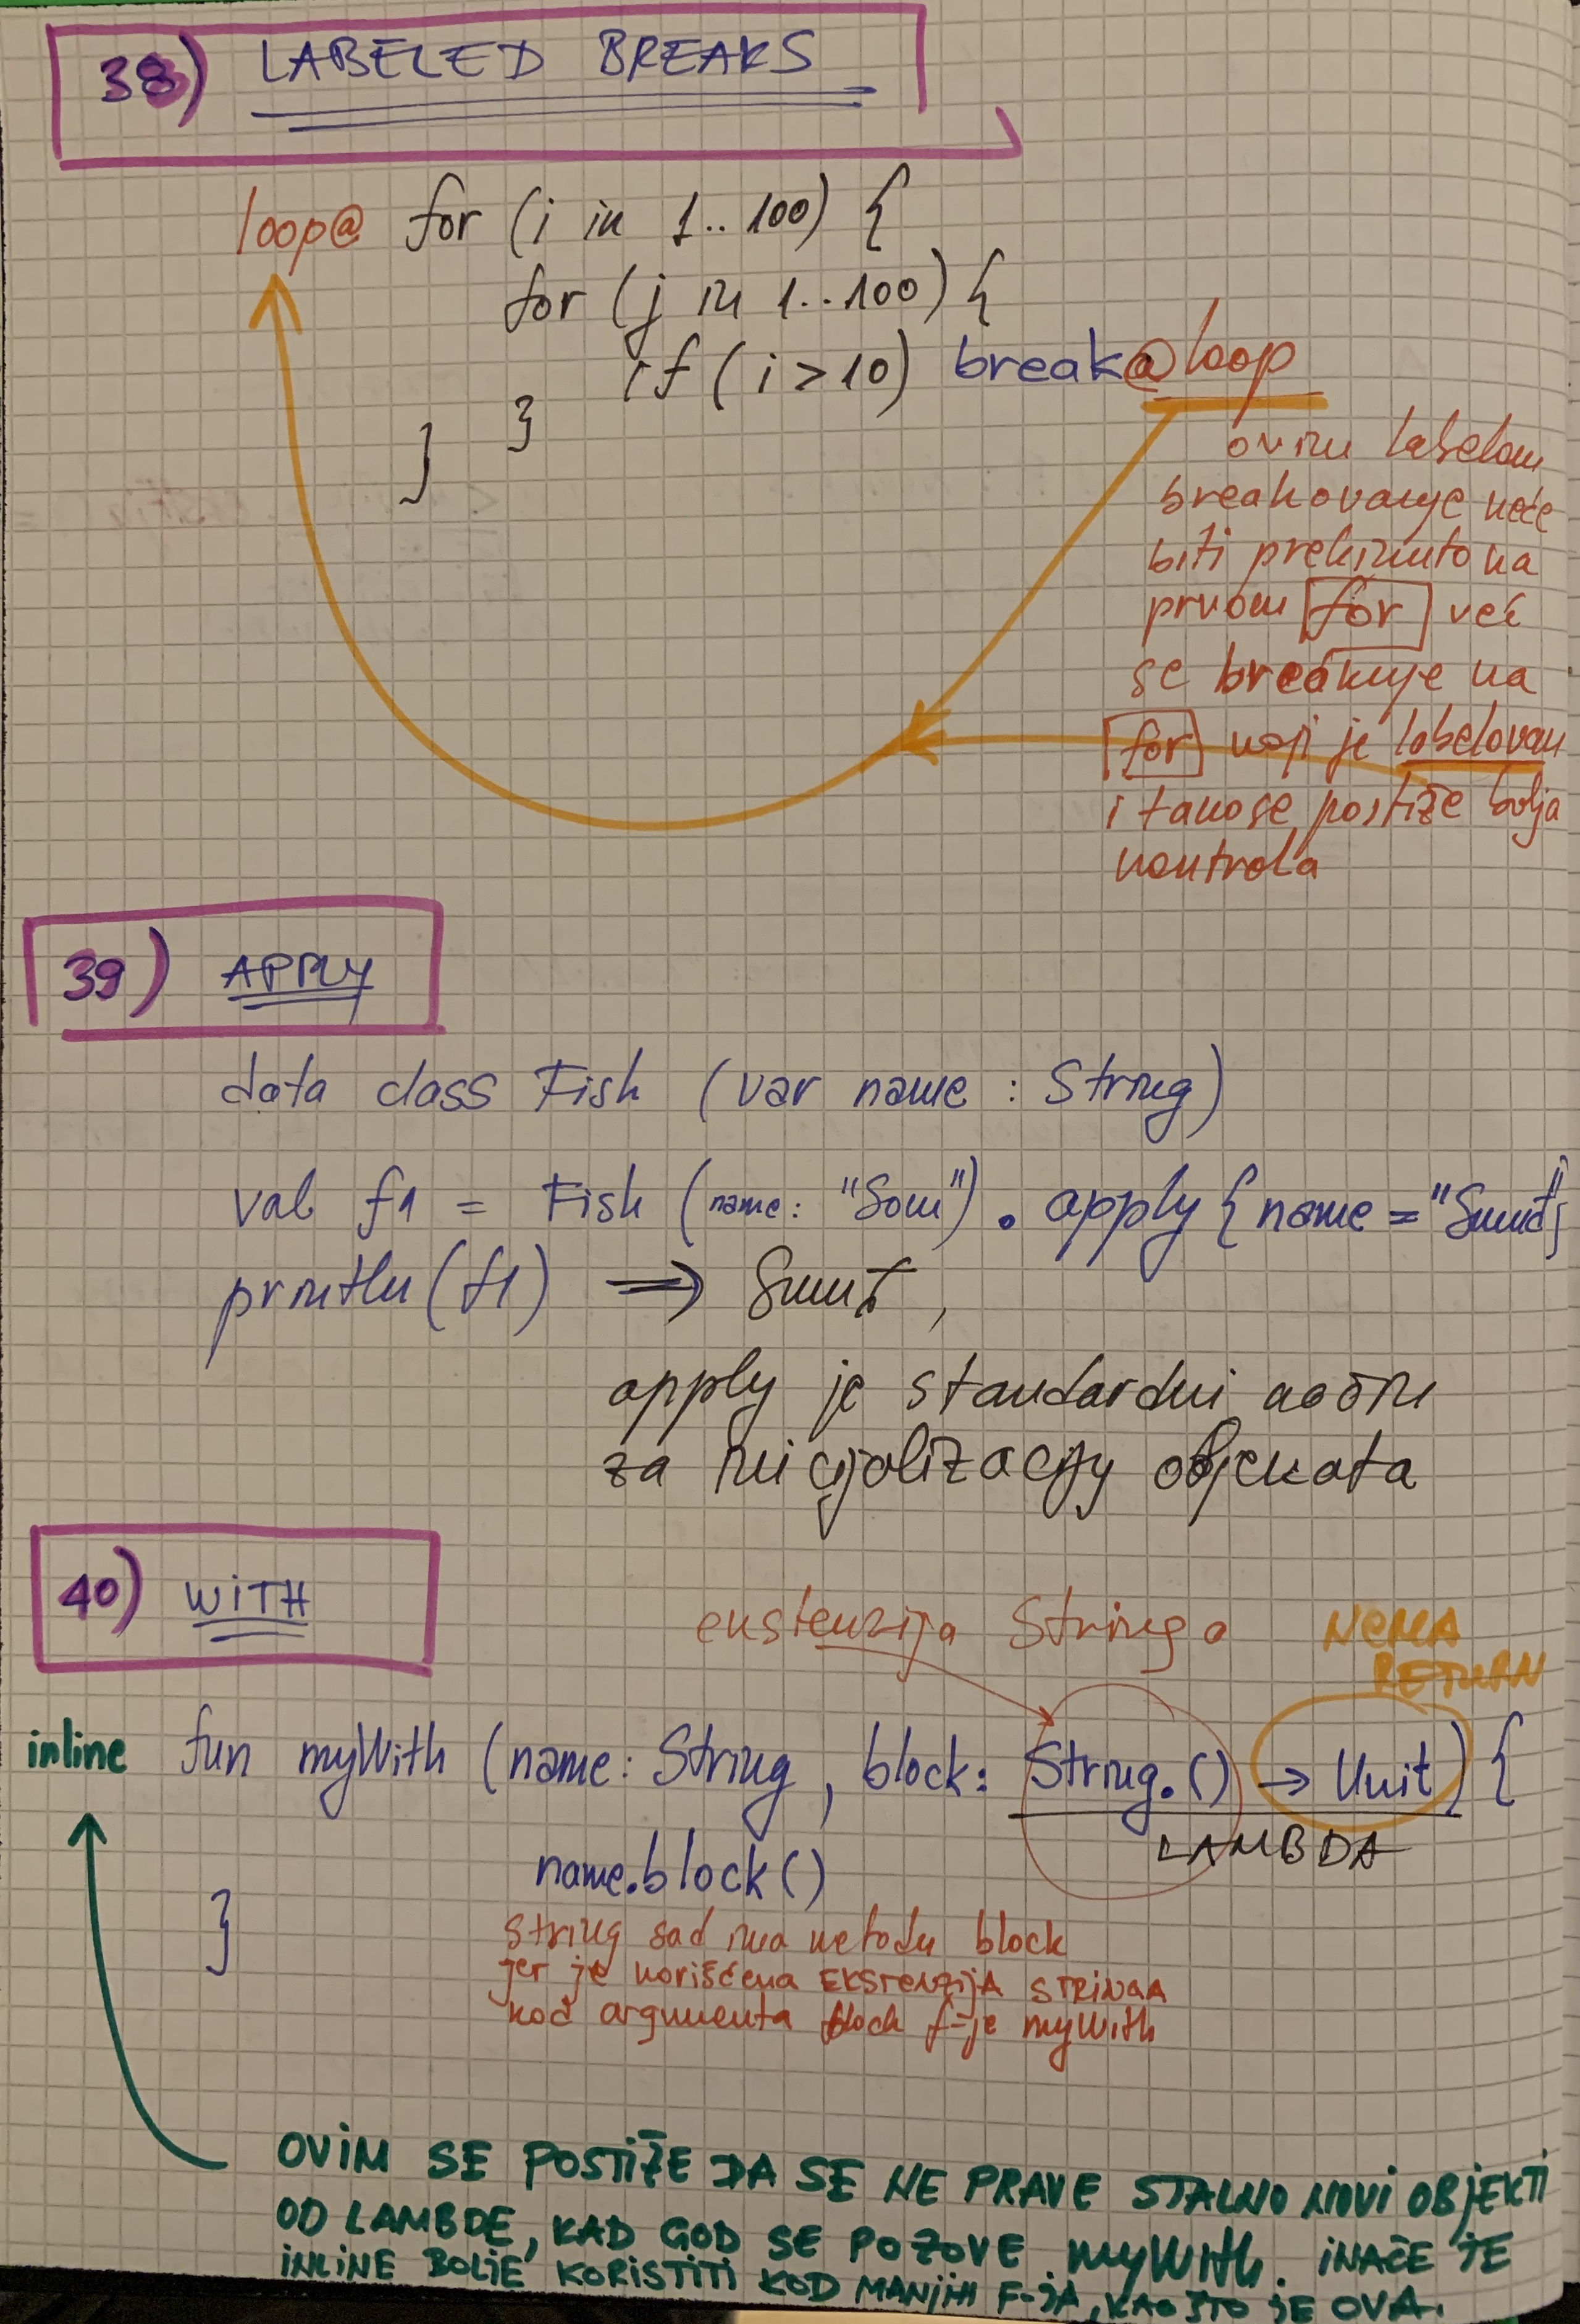 38) LABELED BREAKS
loop@ for (i in 1..100) {
for (j in 1..100) {
if (i > 10) break@loop
}
}
ovim labelom
breakovanje neće
biti prekinuto na
prvom for već
se breakuje na
for koji je labelovan
i tako se postiže bolja
kontrola
39) APPLY
data class Fish (var name : String)
val f1 = Fish (name: "Som").apply{name="Smuđ"}
println(f1) ⇒ Smuđ,
apply je standardni način
za inicijalizaciju objekata
40) WITH
ekstenzija Stringa
NEMA
RETURN
inline fun myWith (name: String, block: String.() → Unit) {
LAMBDA
name.block()
}
String sad ima metodu block
jer je korišćena EKSTENZIJA STRINGA
kod argumenta block f-je myWith
OVIM SE POSTIŽE DA SE NE PRAVE STALNO NOVI OBJEKTI
OD LAMBDE, KAD GOD SE POZOVE myWith. INAČE JE
INLINE BOLJE KORISTITI KOD MANJIH F-JA, KAO ŠTO JE OVA.